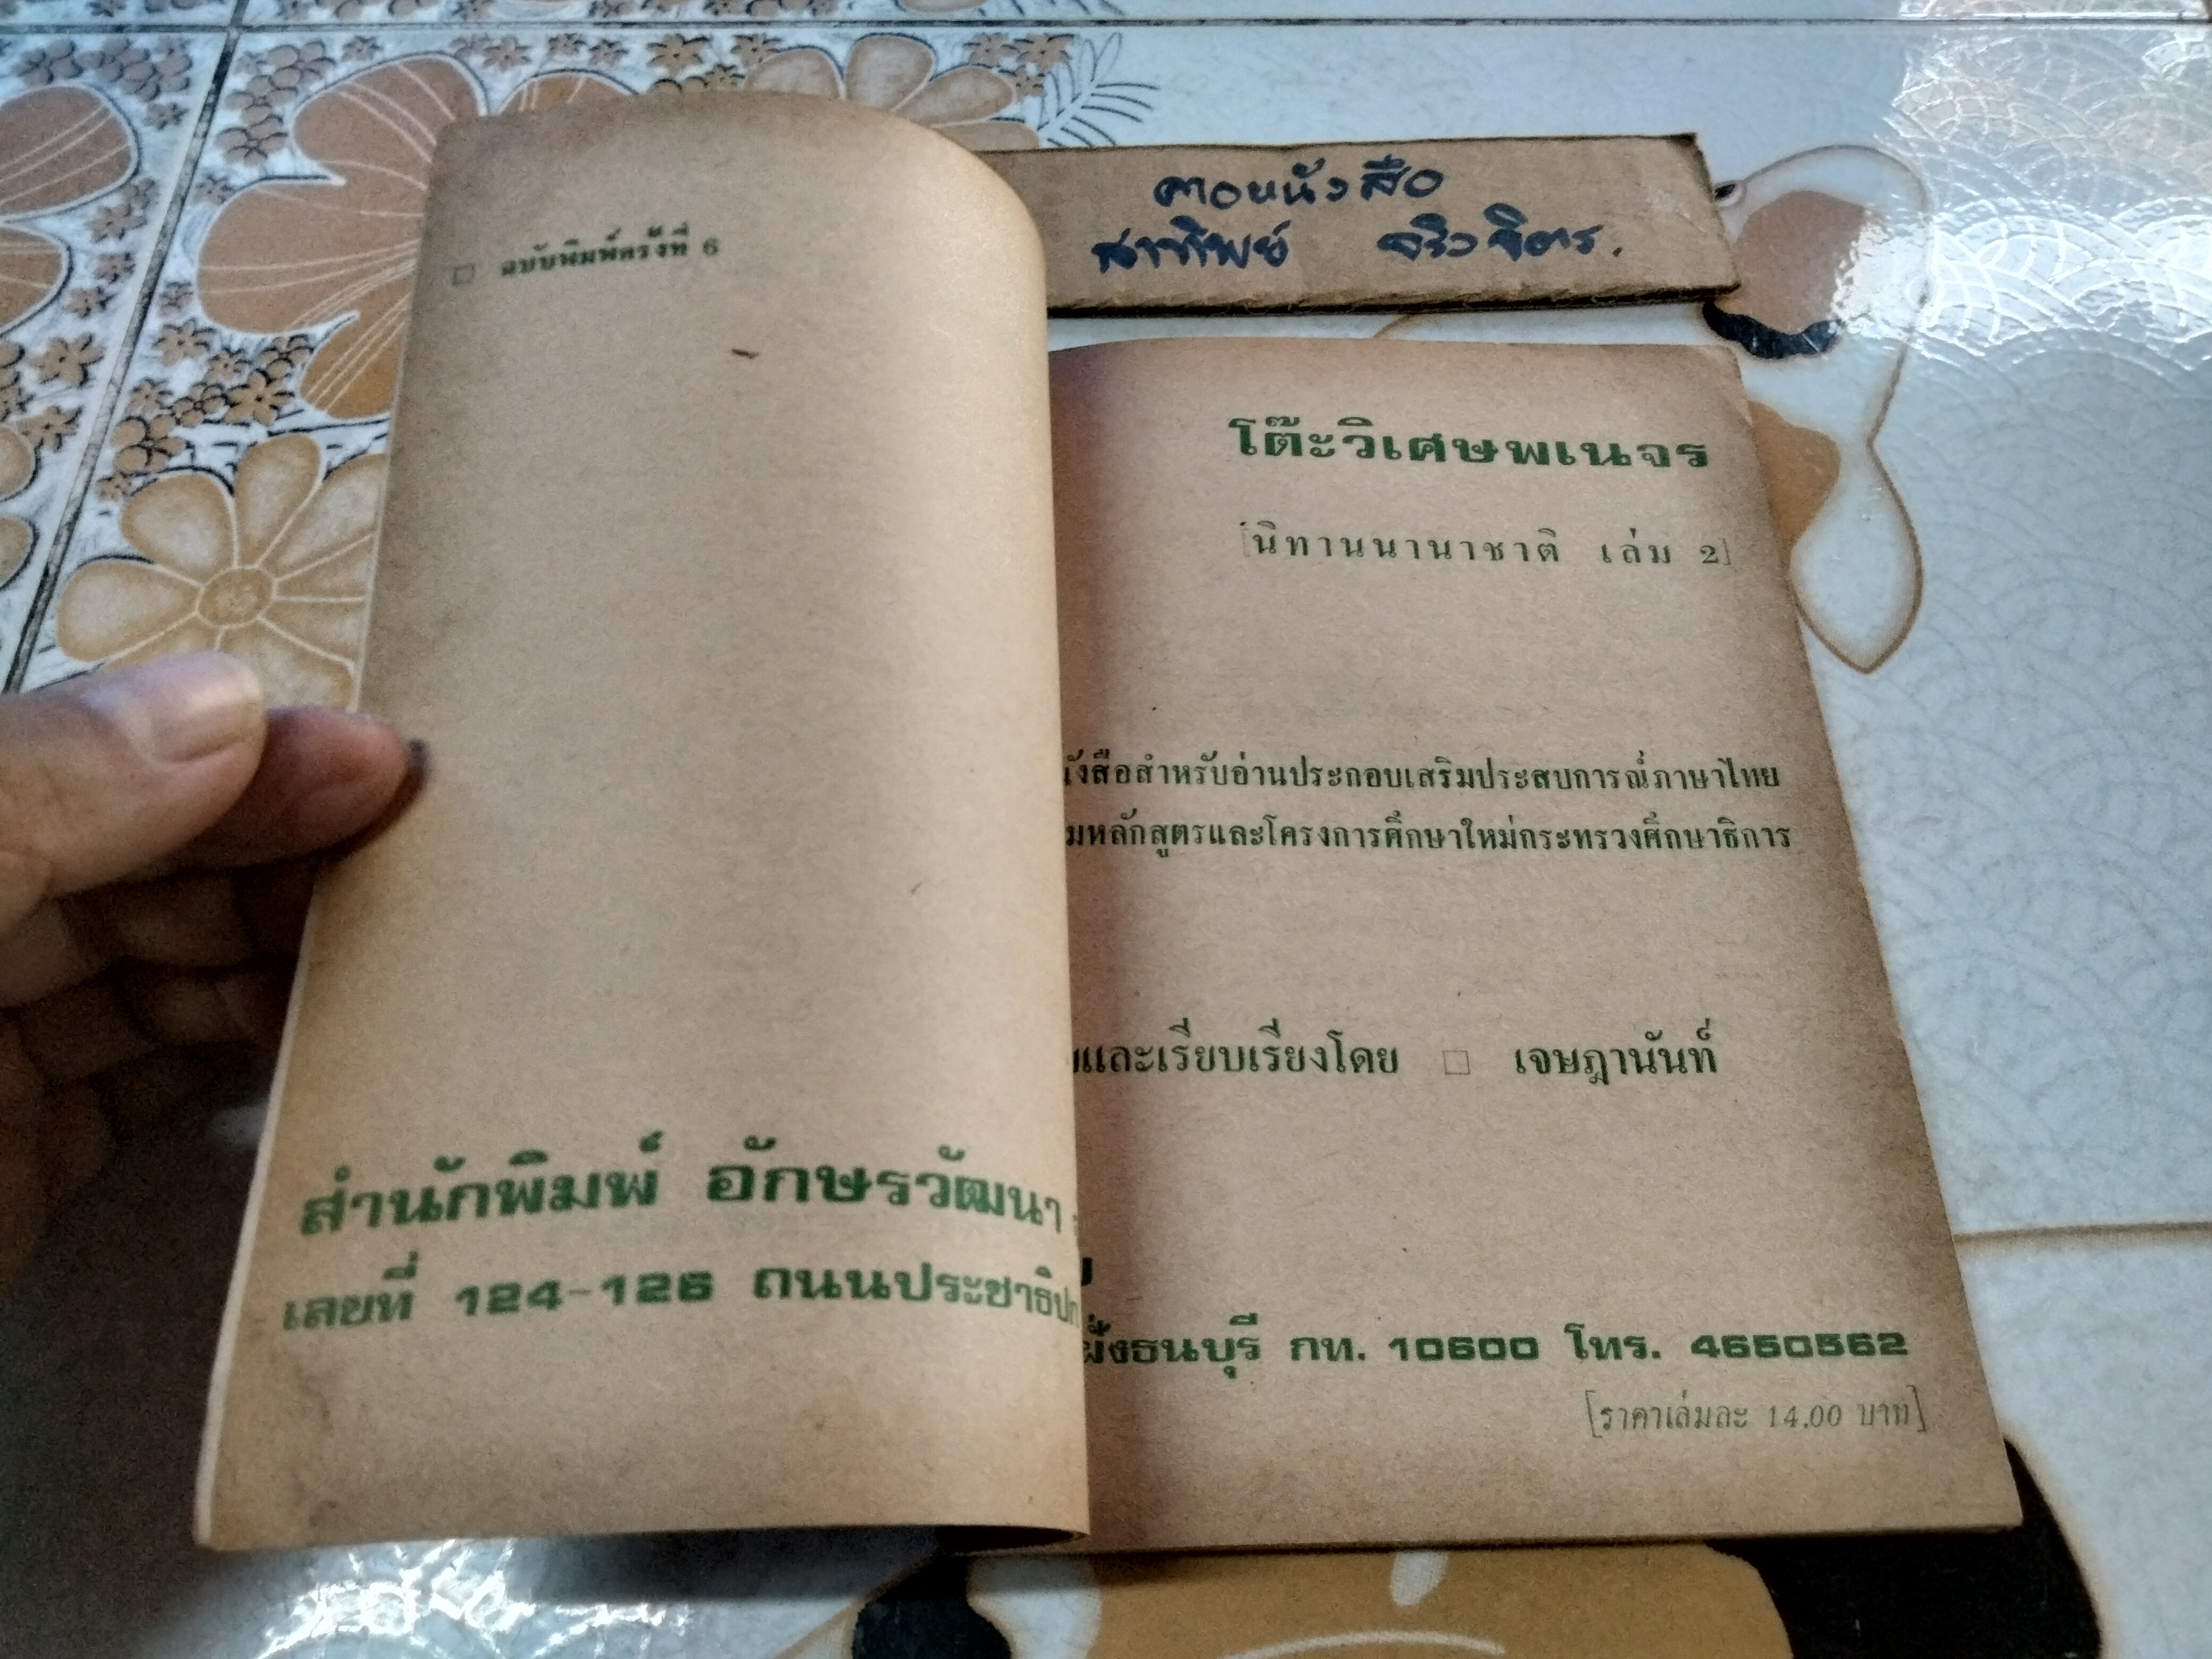 คาอหนังสือ
สาทิพย์ จริงจิตร.
□ ฉบับพิมพ์ครั้งที่ 6
โต๊ะวิเศษพเนจร
[นิทานนานาชาติ เล่ม 2]
ังสือสำหรับอ่านประกอบเสริมประสบการณ์ภาษาไทย
มหลักสูตรและโครงการศึกษาใหม่กระทรวงศึกษาธิการ
และเรียบเรียงโดย □ เจษฎานันท์
สำนักพิมพ์ อักษรวัฒนา
เลขที่ 124-126 ถนนประชาธิป
ฝั่งธนบุรี กท. 10600 โทร. 4650562
[ราคาเล่มละ 14.00 บาท]